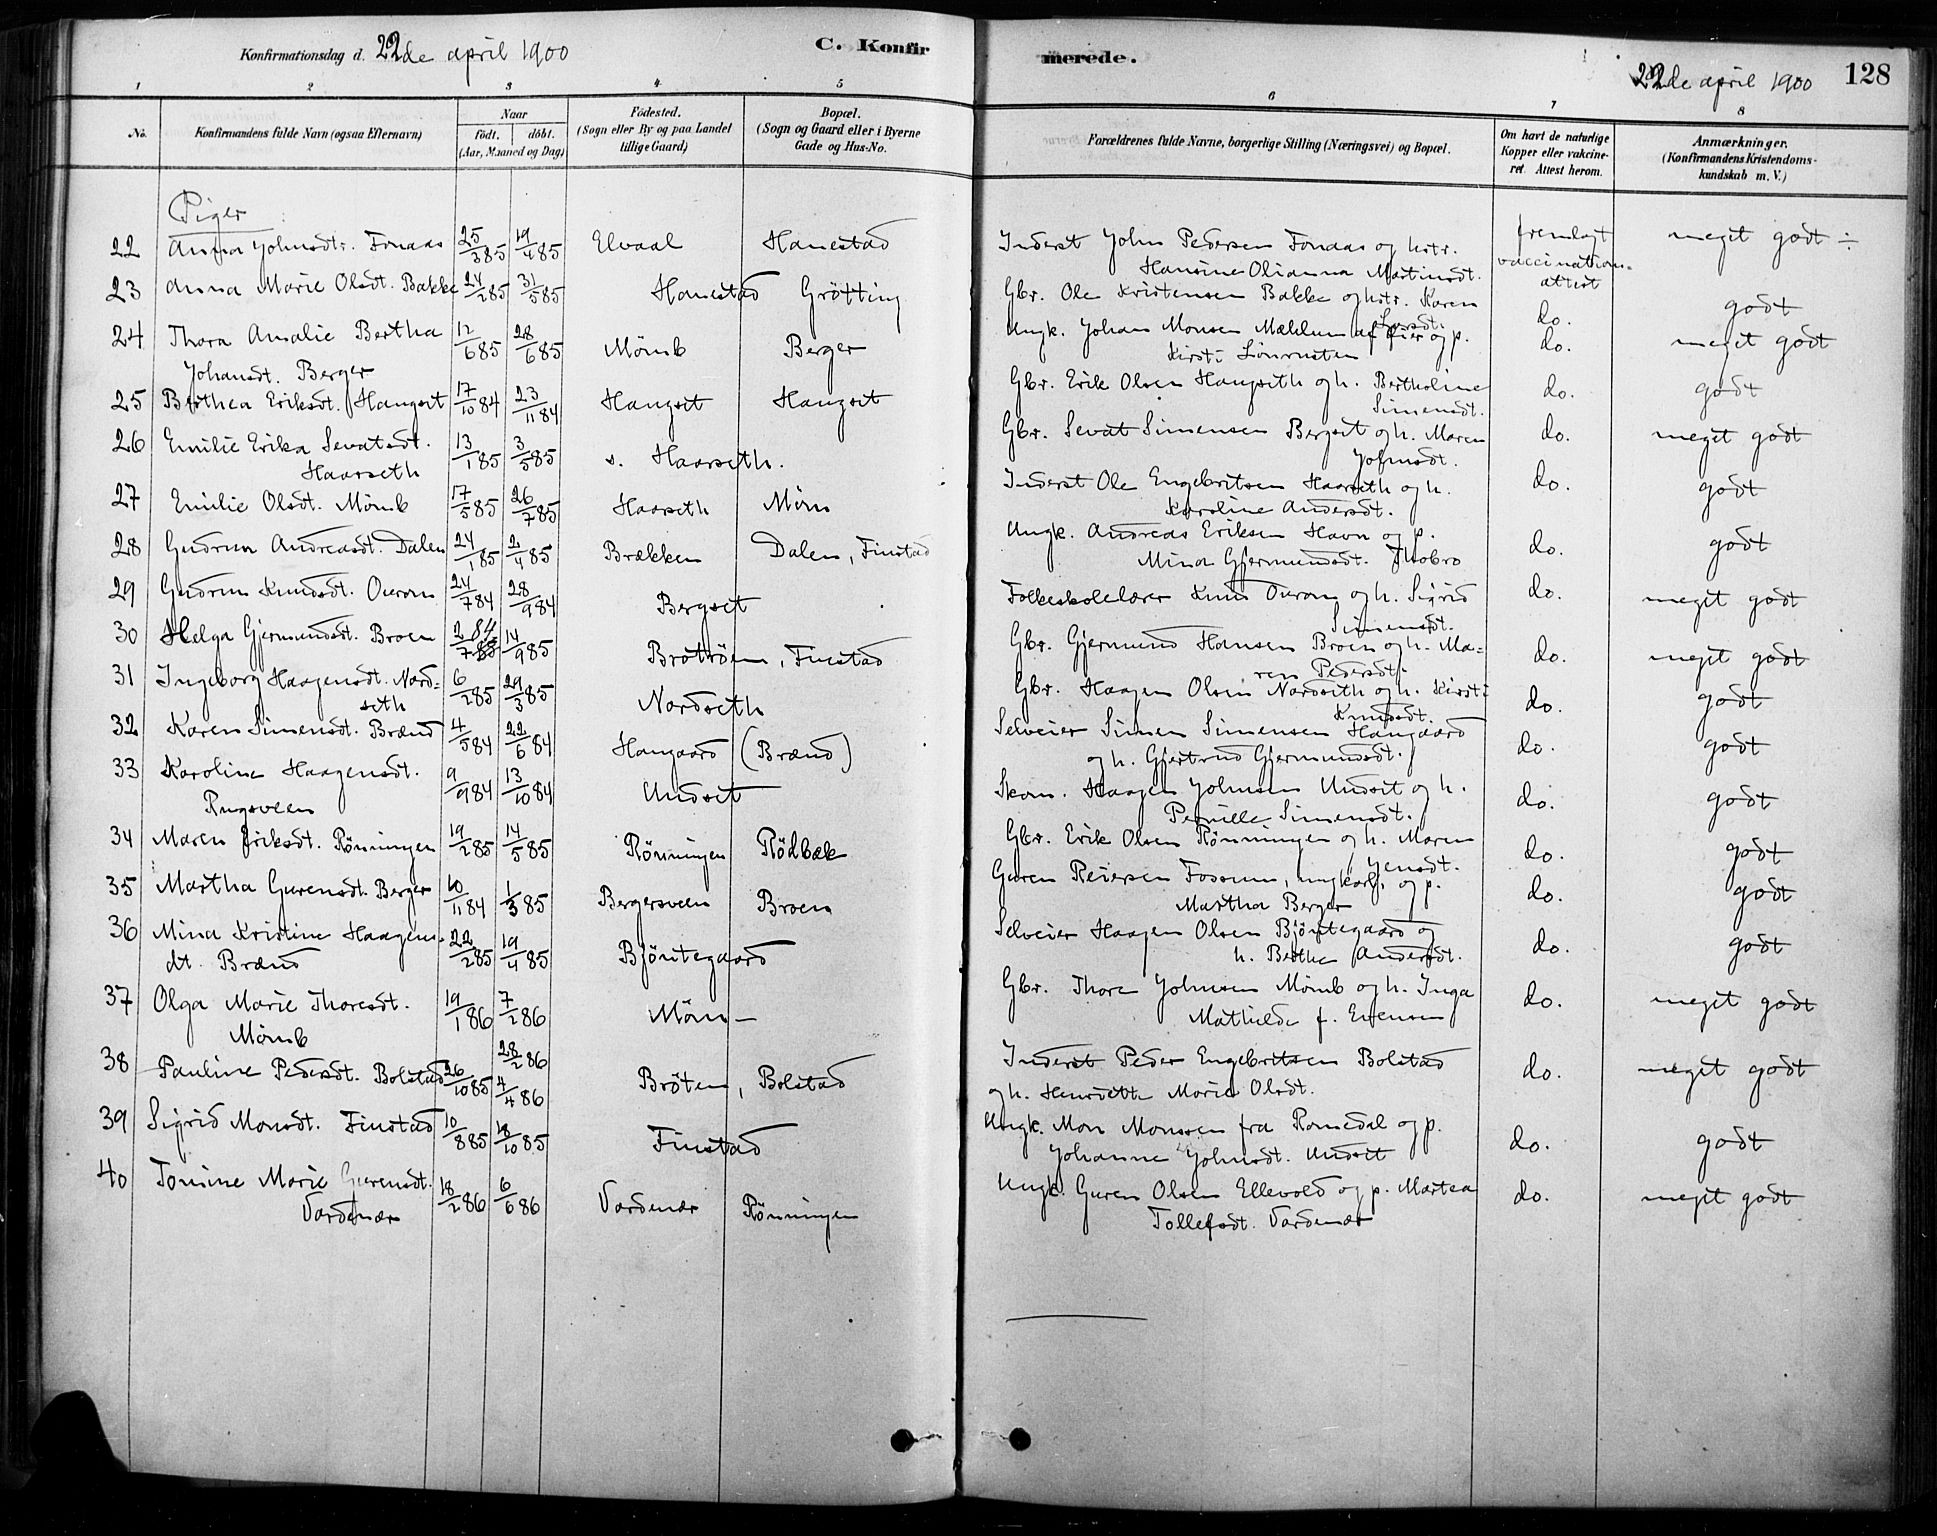 Konfirmationsdag d. 22de april 1900 C. Konfirmerede. 22de april 1900 128
1 2 3 4 5 6 7 8
No. Konfirmandens fulde Navn (ogsaa Efternavn) Naar født. døbt. (Aar, Maaned og Dag) Fødested. (Sogn eller By og paa Landet tillige Gaard) Bopæl. (Sogn og Gaard eller i Byerne Gade og Hus-No. Forældrenes fulde Navne, borgerlige Stilling (Næringsvei) og Bopæl. Om havt de naturlige Kopper eller vakcineret. Attest herom. Anmærkninger. (Konfirmandens Kristendomskundskab m. V.)
Piger
22 Anna Johnsdtr. Fonaas 25/3 85 19/4 85 Elvaal Hanestad Inderst John Pedersen Fonaas og hstr. fremlagt meget godt ÷
Hansine Olianna Martinsdt. vaccinations-
attest
23 Anna Marie Olsdt. Bakke 24/2 85 31/5 85 Hanestad Grötting Gbr. Ole Kristensen Bakke og hstr. Karen do. godt
Larsdt.
24 Thora Amalie Bertha 12/6 85 28/6 85 Mömb Berger Ungk. Johan Monsen Mæhlum af Öier og p. do. meget godt
Johansdt. Berger Kirsti
25 Berthea Eriksdt. Hangset 17/10 84 23/11 84 Hangset Hangset Gbr. Erik Olsen Hangseth og h. Bertholine do. godt
Simensdt.
26 Emilie Erika Sevatsdt. 13/1 85 3/5 85 s. Haarseth. Gbr. Sevat Simensen Bergset og h. Maren do. meget godt
Haarseth Johnsdt.
27 Emilie Olsdt. Mömb 17/5 85 26/7 85 Haarseth Möm Inderst Ole Engebritsen Haarseth og h. do. godt
Karoline Andersdt.
28 Gudrun Andreasdt. Dalen 24/1 85 2/4 85 Brækken Dalen, Finstad Ungk. Andreas Eriksen Havn og p. do. godt
Mina Gjermundsdt. Thobro
29 Gudrun Knudsdt. Ouron 24/7 84 28/9 84 Bergset Folkeskolelærer Knud Ouron og h. Sigrid do. meget godt
Simensdt.
30 Helga Gjermundsdt. Broen 2/7 84 14/9 85 Brötröen, Finstad Gbr. Gjermund Hansen Broen og h. Ma- do. meget godt
ren Pedersdt.
31 Ingeborg Haagensdt. Nord- 6/2 85 29/3 85 Nordseth Gbr. Haagen Olsen Nordseth og h. Kirsti do. godt
seth Knudsdt.
32 Karen Simensdt. Brænd 4/5 84 22/6 84 Haugaard (Brænd) Selveier Simen Simensen Haugaard do. godt
og h. Gjertrud Gjermundsdt.
33 Karoline Haagensdt. 9/9 84 13/10 84 Undset Skom. Haagen Johnsen Undset og h. do. godt
Rugsveen Pernille Simensdt.
34 Maren Eriksdt. Rönningen 19/2 85 14/5 85 Rönningen Rödbæk Gbr. Erik Olsen Rönningen og h. Maren do. godt
Jensdt.
35 Martha Gurensdt. Berger 10/11 84 1/3 85 Bergersveen Broen Guren Reiersen Fossum, ungkarl, og p. do. godt
Martha Berger
36 Mina Kristine Haagens- 22/2 85 19/4 85 Bjöntegaard Selveier Haagen Olsen Bjöntegaard og do. godt
dt. Brænd h. Berthe Andersdt.
37 Olga Marie Thoresdt. 19/1 86 7/2 86 Möm- Gbr. Thore Johnsen Mömb og h. Inga do. meget godt
Mömb Mathilde f. Evensen
28/2 86
38 Pauline Pedersdt. Bolstad 26/10 85 4/4 86 Bröten, Bolstad Inderst Peder Engebritsen Bolstad do. meget godt
og h. Henriette Marie Olsdt.
39 Sigrid Monsdt. Finstad 10/8 85 18/10 85 Finstad Ungk. Mon Monssen fra Romedal og p. do. godt
Johanne Johnsdt. Undset
40 Tomine Marie Gurensdt. 18/2 86 6/6 86 Vardenær Rönningen Ungk. Guren Olsen Ellevold og p. Martea do. meget godt
Vardenær Tollefsdt. Vardenær